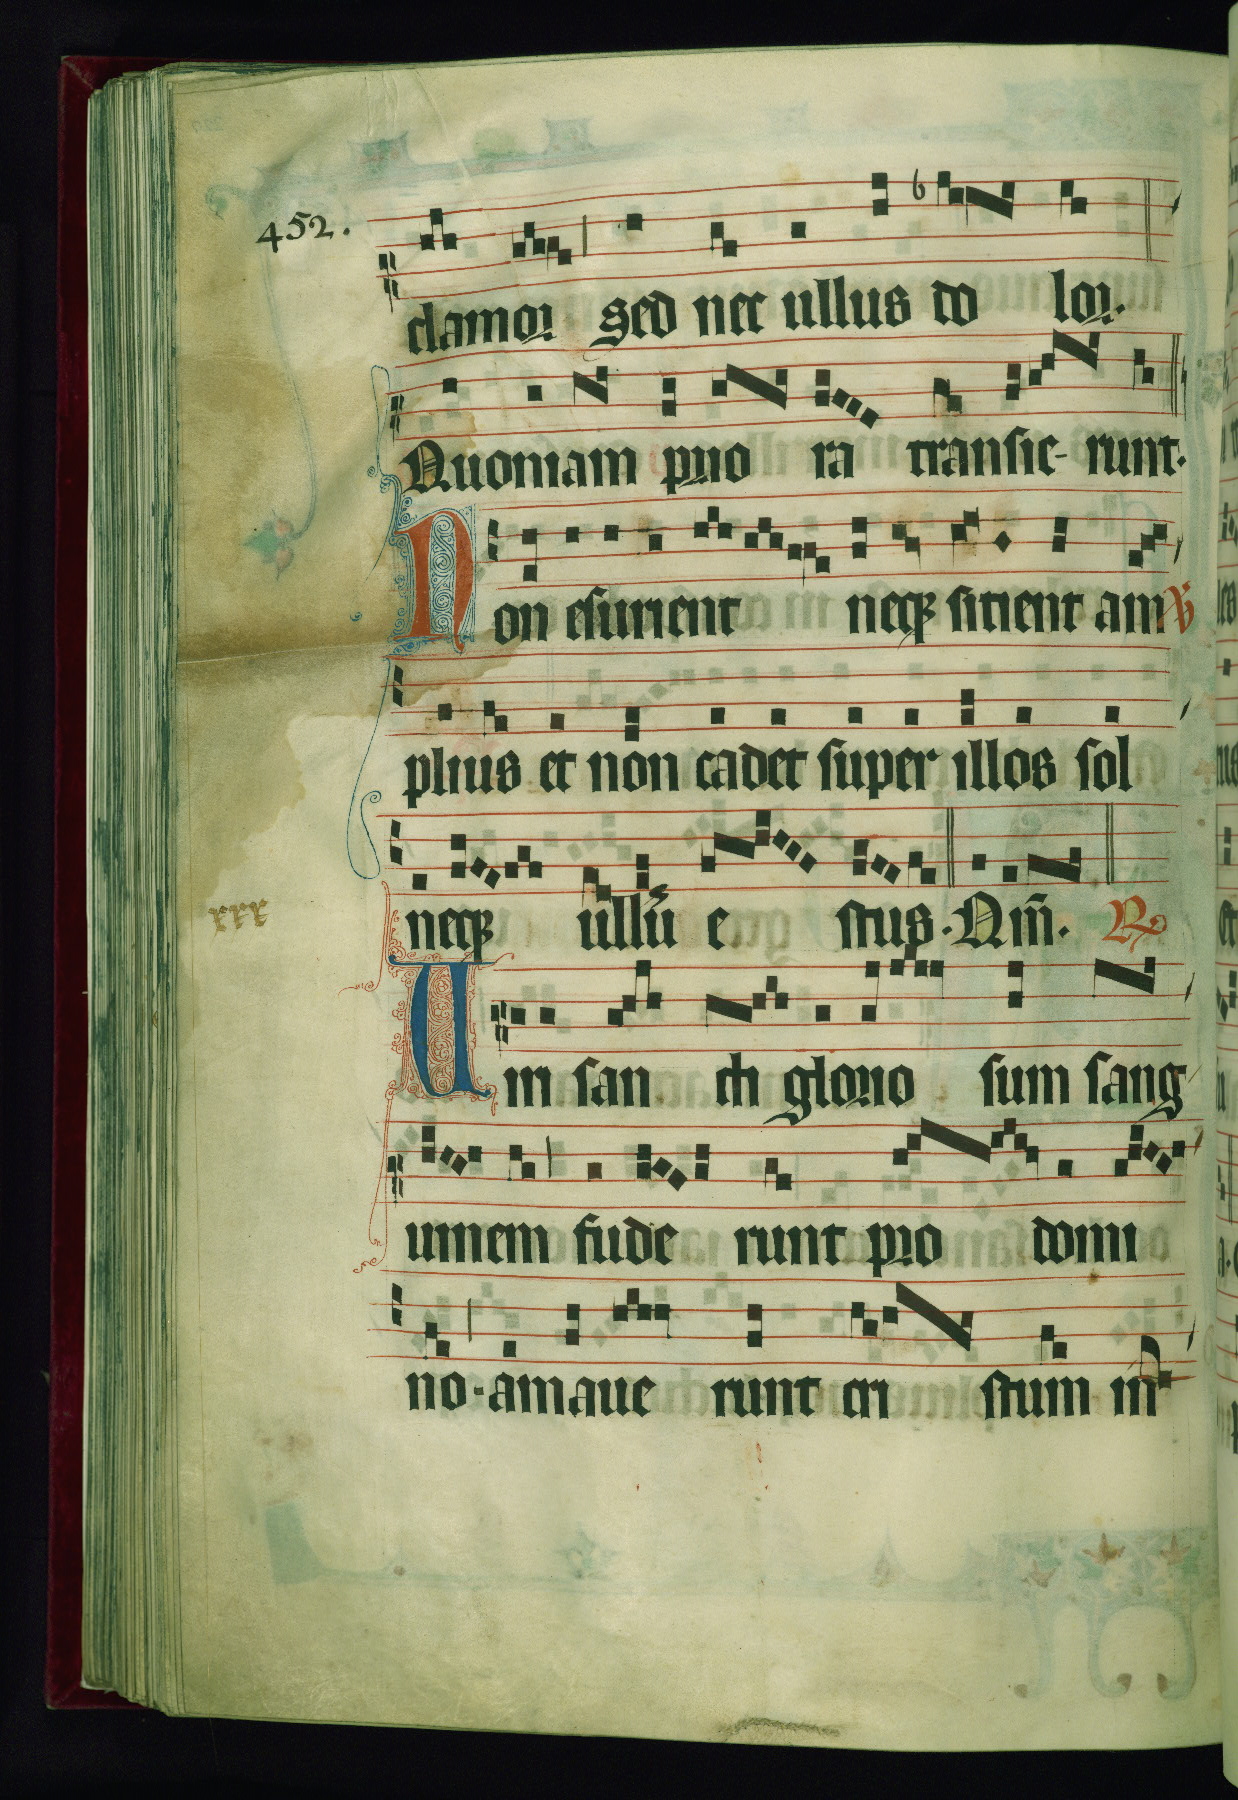 452.
clamor sed nec ullus do lor.
Quoniam prio ra transie- runt.
Non esurient neq3 sitient am ℣
plius et non cadet super illos sol
neq3 ullū e stus. Qm̄. ℟
xxx
Uiri san cti glorio sum sang
uinem fude runt pro domi
no. amaue runt cri stum in